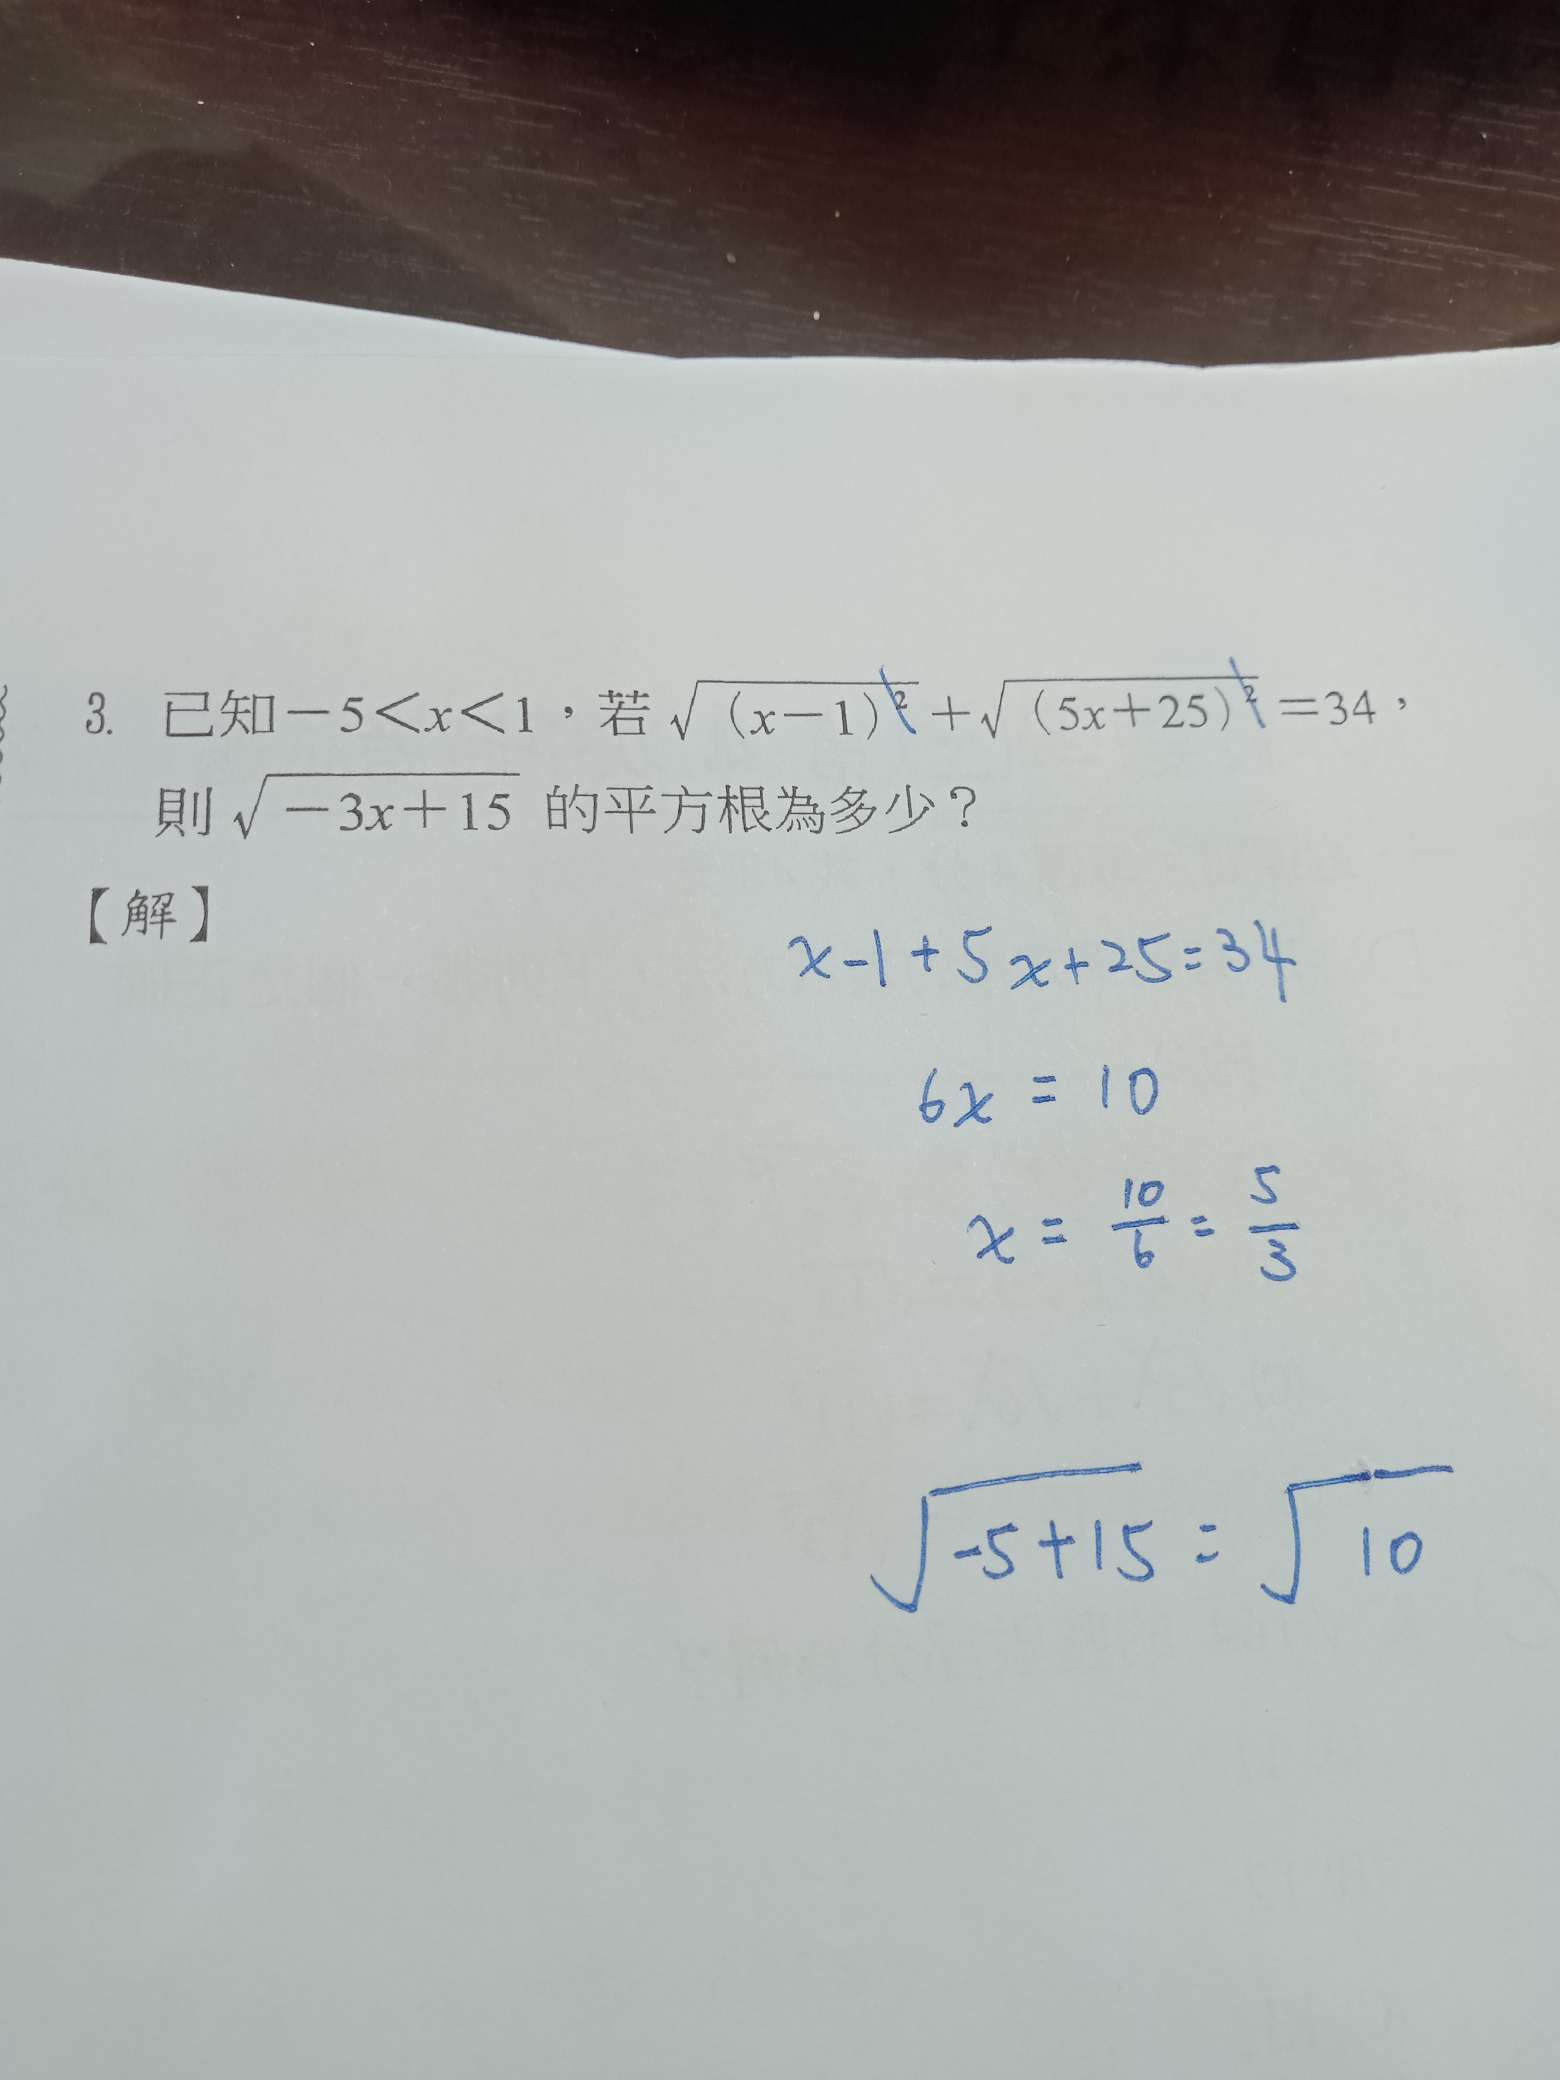 3. 已知－5＜x＜1，若 √(x－1)² ＋√(5x＋25)² ＝34，
則 √－3x＋15 的平方根為多少？
【解】
x-1+5x+25=34
6x = 10
x = 10/6 = 5/3
√-5+15 = √10